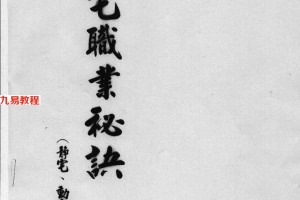 宅職業秘訣
(靜宅、動
九易教程